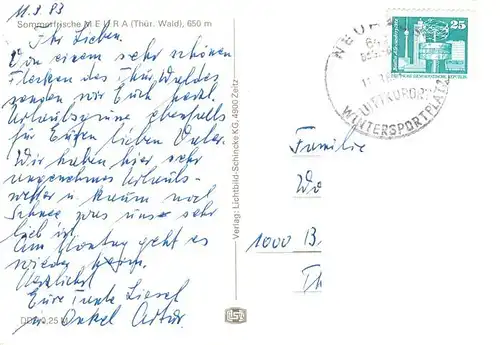 11.3.83
Sommerfrische M E U R A (Thür. Wald), 650 m
Ihr Lieben.
Von einem sehr schönen
Flecken des Thür Waldes
senden wir Euch herzl.
Urlaubsgrüße ebenfalls
für Eugen lieben Vater.
Wir haben hier sehr
angenehmes Urlaubs-
wetter u. kaum noch
Schnee was uns sehr
lieb ist
Am Montag geht es
wieder heim.
Herzlichst
Eure Tante Liesel
u. Onkel Artur.
DDR 0,25 M
Verlag: Lichtbild-Schincke KG, 4900 Zeitz
25
LUFTKURORT
WINTERSPORTPLATZ
Familie
1000 B